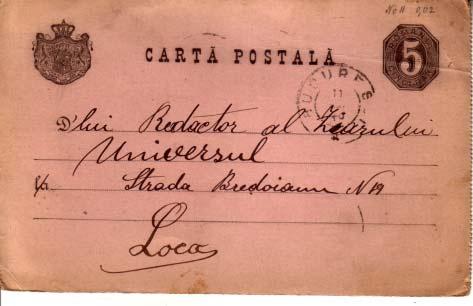 No 11 0,02
CARTĂ POSTALĂ
5
BUCURESCI
11
D'lui Redactor al Ziarului
Universul
Strada Brezoianu N 19
Loco